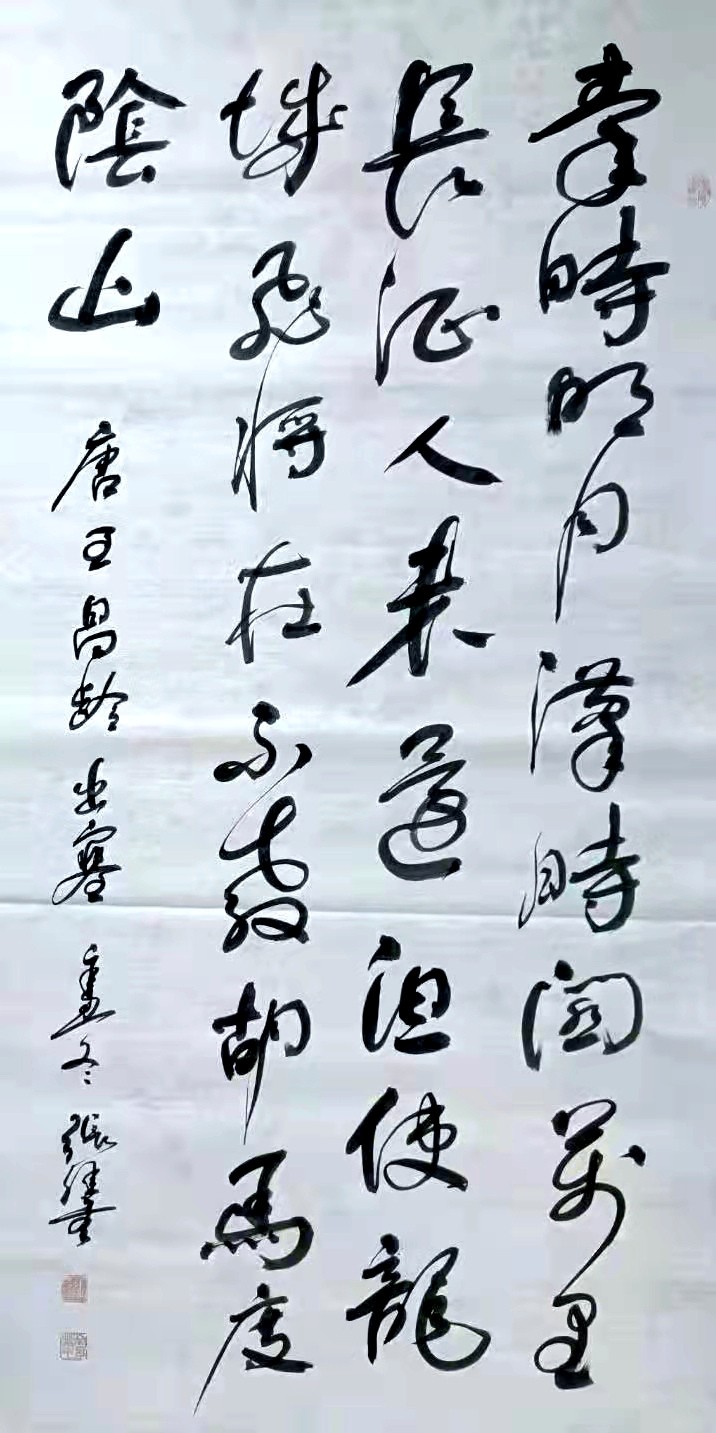 秦時明月漢時關萬里
長征人未還但使龍
城飛將在不教胡馬度
陰山
唐王昌齡出塞 冬 張健書